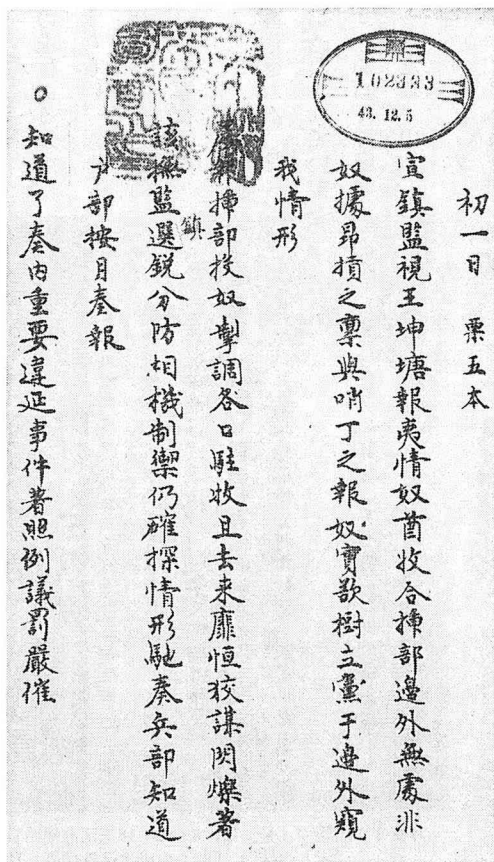 102333
43.12.5
初一日 票五本
宣鎮監視王坤塘報夷情奴酋收合揷部邊外無處非
奴據昂之稟與哨丁之報奴實欲樹立黨于邊外窺
我情形
揷部投奴掣調各口駐牧且去来靡恒狡謀閃爍著
該撫監鎮選銳分防相機制禦仍確探情形馳奏兵部知道
戶部按月奏報
○知道了奏内重要違延事件著照例議罰嚴催